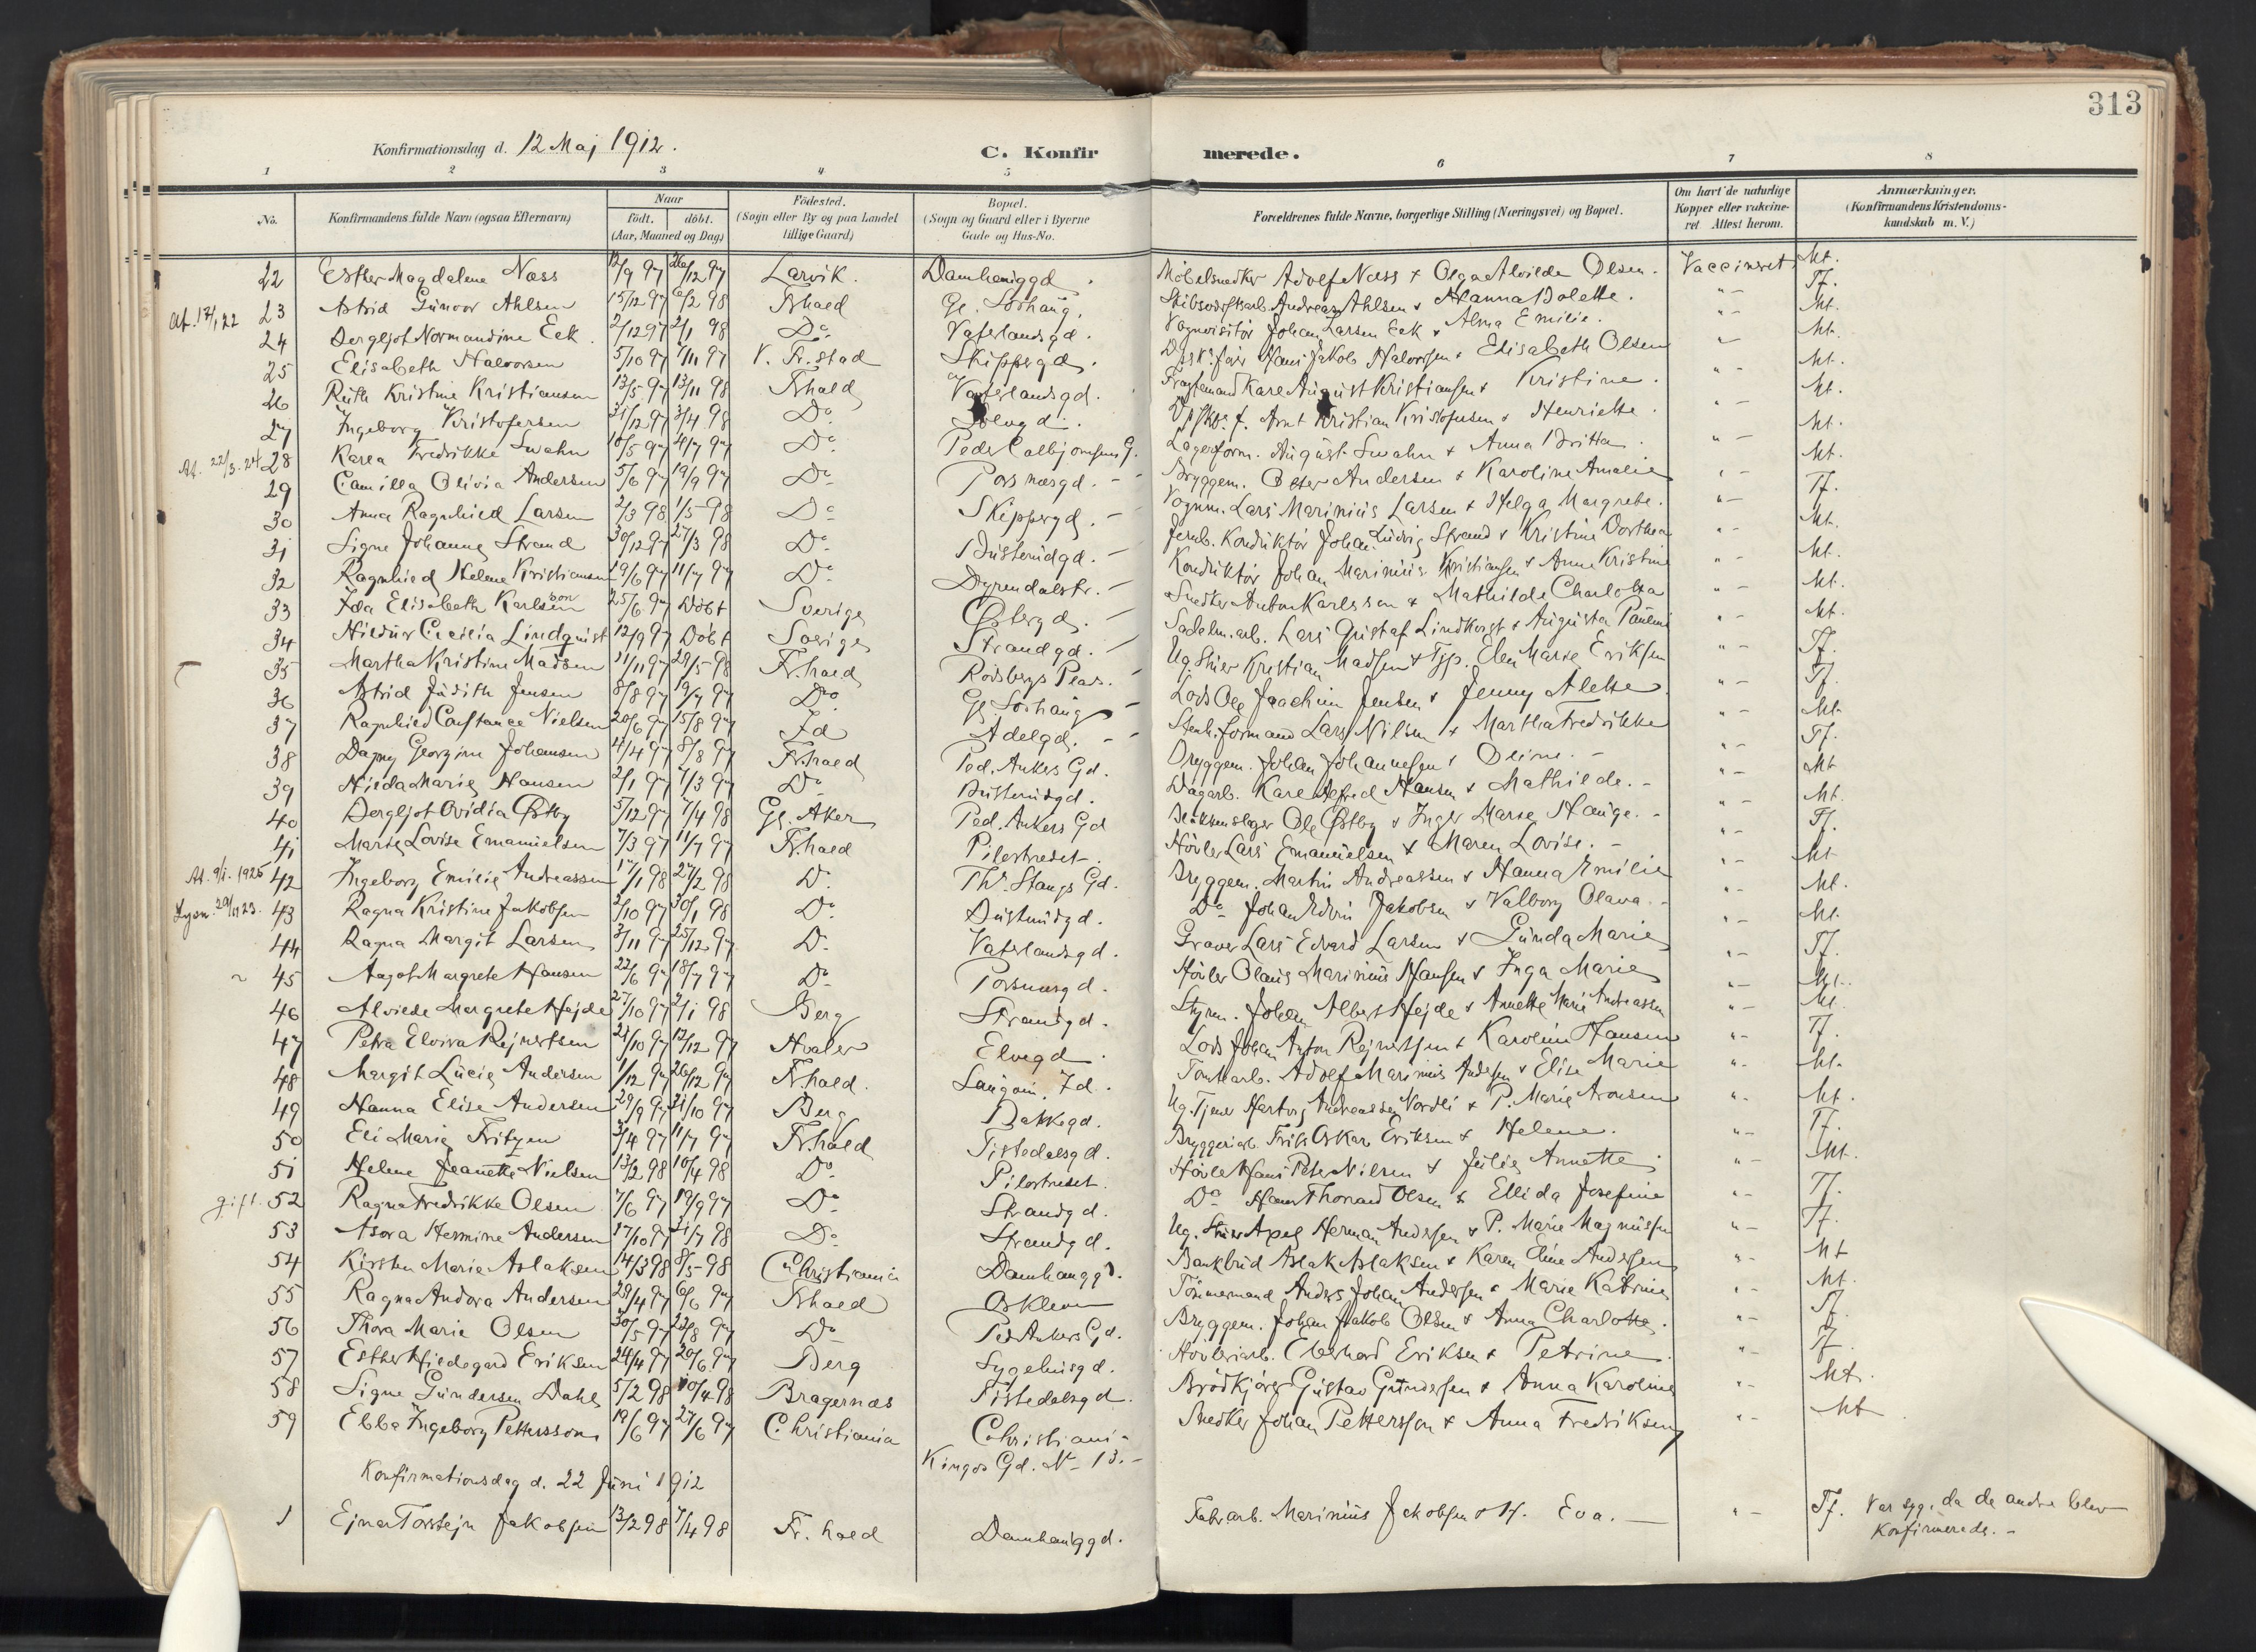 313
Konfirmationsdag d. 12 Maj 1912.
C. Konfirmerede.
1 2 3 4 5 6 7 8
No.
Konfirmandens fulde Navn (ogsaa Efternavn)
Naar
födt. döbt.
(Aar, Maaned og Dag)
Födested.
(Sogn eller By og paa Landet
tillige Gaard)
Bopæl.
(Sogn og Gaard eller i Byerne
Gade og Hus-No.
Forældrenes fulde Navne, borgerlige Stilling (Næringsvei) og Bopæl.
Om havt de naturlige
Kopper eller vakcine-
ret Attest herom.
Anmærkninger.
(Konfirmandens Kristendoms-
kundskab m. V.)
22 Esther Magdalene Næss 12/9 97 26/12 97 Larvik. Damhauggd. Möbelsnedker Adolf Næss & Olga Alvilde Olsen. Vaccineret. Mt.
At. 17/1 22 23 Astrid Gunvor Ahlsen 15/12 97 6/2 98 Frhald Gl. Sörhaug. Andreas Ahlsen & Hanna Bolette. " - Tf.
24 Bergljot Normandine Eek. 2/12 97 2/1 98 Do Vaterlandsgd. Vognvisitör Johan Larsen Eek & Alma Emilie. " - Mt.
25 Elisabeth Halvorsen 5/10 97 7/11 97 V. Fr.stad Skippergd. Hans Jakob Halvorsen & Elisabeth Olsen " - Mt.
26 Ruth Kristine Kristiansen 13/5 97 13/11 98 Frhald Vaterlandsgd. Karl August Kristiansen & Kristine. " - Mt.
27 Ingeborg Kristofersen 31/12 97 3/4 98 Do Elvegd. Arnt Kristian Kristofersen & Henriette. " - Mt.
At. 22/3. 24 28 Karla Fredrikke Swahn 18/5 97 4/7 97 Do Peder Colbjörnsens G. Lagerform. August Swahn & Anna Britta. " - Mt.
29 Camilla Olivia Andersen 5/6 97 19/9 97 Do Porsnæsgd. - Bryggem. Andersen & Karoline Amalie " - Mt.
30 Anna Ragnhild Larsen 2/3 98 1/5 98 Do Skippergd. - Vognm. Lars Marinius Larsen & Helga Margrete. " - Tf.
31 Signe Johanne Strand 30/12 97 27/3 98 Do Busterudgd. - Jernb. Konduktör Johan Ludvig Strand & Kristine Dorthea " - Mt.
32 Ragnhild Helene Kristiansen 19/6 97 11/7 97 Do Dyrendalstr. - Konduktör Johan Marinius Kristiansen & Anne Kristine " - Mt.
33 Ida Elisabeth Karlsson 25/6 97 Döbt Sverige Östergd. - Snedker Anton Karlsson & Mathilde Charlotta " - Mt.
34 Hildur Cecilia Lindquist 12/9 97 Döbt Sverige Strandgd. - Sadelm. arb. Lars Gustaf Lindkvist & Augusta Pauline " - Mt.
35 Martha Kristine Madsen 11/11 97 29/5 98 Fr.hald Rödsbergs Plads. - Ug. Skier Kristian Madsen & Tjp. Elen Marie Eriksen " - Tf.
36 Astrid Judith Jensen 8/8 97 19/9 97 Do Gl. Sörhaug - Lods Ole Joachim Jensen & Jenny Alette " - Tf.
37 Ragnhild Constance Nielsen 20/6 97 15/8 97 Id Adelgd. - - Stenh.formand Lars Nilsen & Martha Fredrikke " - Mt.
38 Dagny Georgine Johansen 4/4 97 8/8 97 Fr.hald Ped. Ankers Gd. Bryggem. Johan Johannesen & Oline. - " - Tf.
39 Hilda Marie Hansen 2/1 97 7/3 97 Do Busterudgd. Dagarb. Karl Alfred Hansen & Mathilde. - " - Mt
40 Bergljot Ovidia Östby 5/12 97 7/4 98 Gl. Aker Ped. Ankers Gd Blikkenslager Ole Östby & Inger Marie Hauge. - " - Mt.
41 Marie Lovise Emanuelsen 7/3 97 11/7 97 Fr.hald Pilestrædet. Hövler Lars Emanuelsen & Maren Lovise. - " - Tf.
At. 9/1. 1925 42 Ingeborg Emilie Andreassen 17/1 98 27/2 98 Do Thv. Stangs Gd. Bryggem. Martin Andreassen & Hanna Emilie " - Mt
Lysn. 29/11 23. 43 Ragna Kristine Jakobsen 2/10 97 30/1 98 Do Busterudgd. Do Johan Edvin Jakobsen & Valborg Olava. - " - Mt.
44 Ragna Margit Larsen 3/11 97 25/12 97 Do Vaterlandsgd. Graver Lars Edvard Larsen & Gunda Marie " - Mt.
45 Aagot Margrete Hansen 22/6 97 18/7 97 Do Porsnæsgd. Hövler Olaus Marinius Hansen & Inga Marie " - Tf.
46 Alvilde Margrete Hejde 27/10 97 2/1 98 Berg Strandgd. Styrm. Johan Albert Hejde & Annette Marie Andreassen " - Mt.
47 Petra Elvira Rejnertsen 21/10 97 12/12 97 Hvaler Elvegd. Lods Johan Anton Rejnertsen & Karoline Hansen " - Tf.
48 Margit Lucie Andersen 1/12 97 26/12 97 Fr.hald. Id. Tomtearb. Adolf Marinius Andersen & Elise Marie " - Mt.
49 Hanna Elise Andersen 29/9 97 31/10 97 Berg Bakkegd. Ug. Tjener Hartvig Andreassen Nordli & P. Marie Aronsen " - Mt.
50 Eli Marie Fritzen 3/4 97 11/7 97 Frhald Tistedalsgd. Bryggeriarb. Oskar Eriksen & Helene. " - Tf.
51 Helene Jeanette Nielsen 13/2 98 10/4 98 Do Pilestrædet. Hövler Hans Peter Nilsen & Julie Annette " - Mt.
gift. 52 Ragna Fredrikke Olsen 7/6 97 19/9 97 Do Strandgd. Do Hans Thorvald Olsen & Ellida Josefine " - Tf.
53 Asora Hermine Andersen 17/10 97 31/7 98 Do Strandgd. Ug. Skier Axel Herman Andersen & P. Marie Magnussen " - Tf.
54 Kirsten Marie Aslaksen 14/3 98 8/5 98 Christiania Damhauggd. Bankbud Aslak Aslaksen & Karen Eline Andersen " - Mt
55 Ragna Andora Andersen 29/4 97 6/6 97 Frhald Oskleven Tömmermand Anders Johan Andersen & Marie Katrine " - Mt.
56 Thora Marie Olsen 30/5 97 22/8 97 Do Ped Ankers Gd. Bryggem. Johan Jakob Olsen & Anna Charlotte. " - Tf.
57 Esther Hildegard Eriksen 24/4 97 20/6 97 Berg Sygehusgd. Hövleriarb. Eberhard Eriksen & Petrine. " - Tf.
58 Signe Gundersen Dahl 5/2 98 10/4 98 Bragernæs Tistedalsgd. Brödkjörer Gustav Gundersen & Anna Karoline " - Mt.
59 Ebba Ingeborg Pettersson 19/6 97 27/6 97 Christiania Christiania Snedker Johan Pettersson & Anna Fredriksen " - Mt
Kingos Gd. No 13. -
Konfirmationsdag d. 22 Juni 1912
1 Ejnar Torstejn Jakobsen 13/2 98 7/4 98 Fr. hald Damhauggd. Fabr.arb. Marinius Jakobsen & H. Eva. - " - Tf. Var syg, da de andre blev
Konfirmerede. -